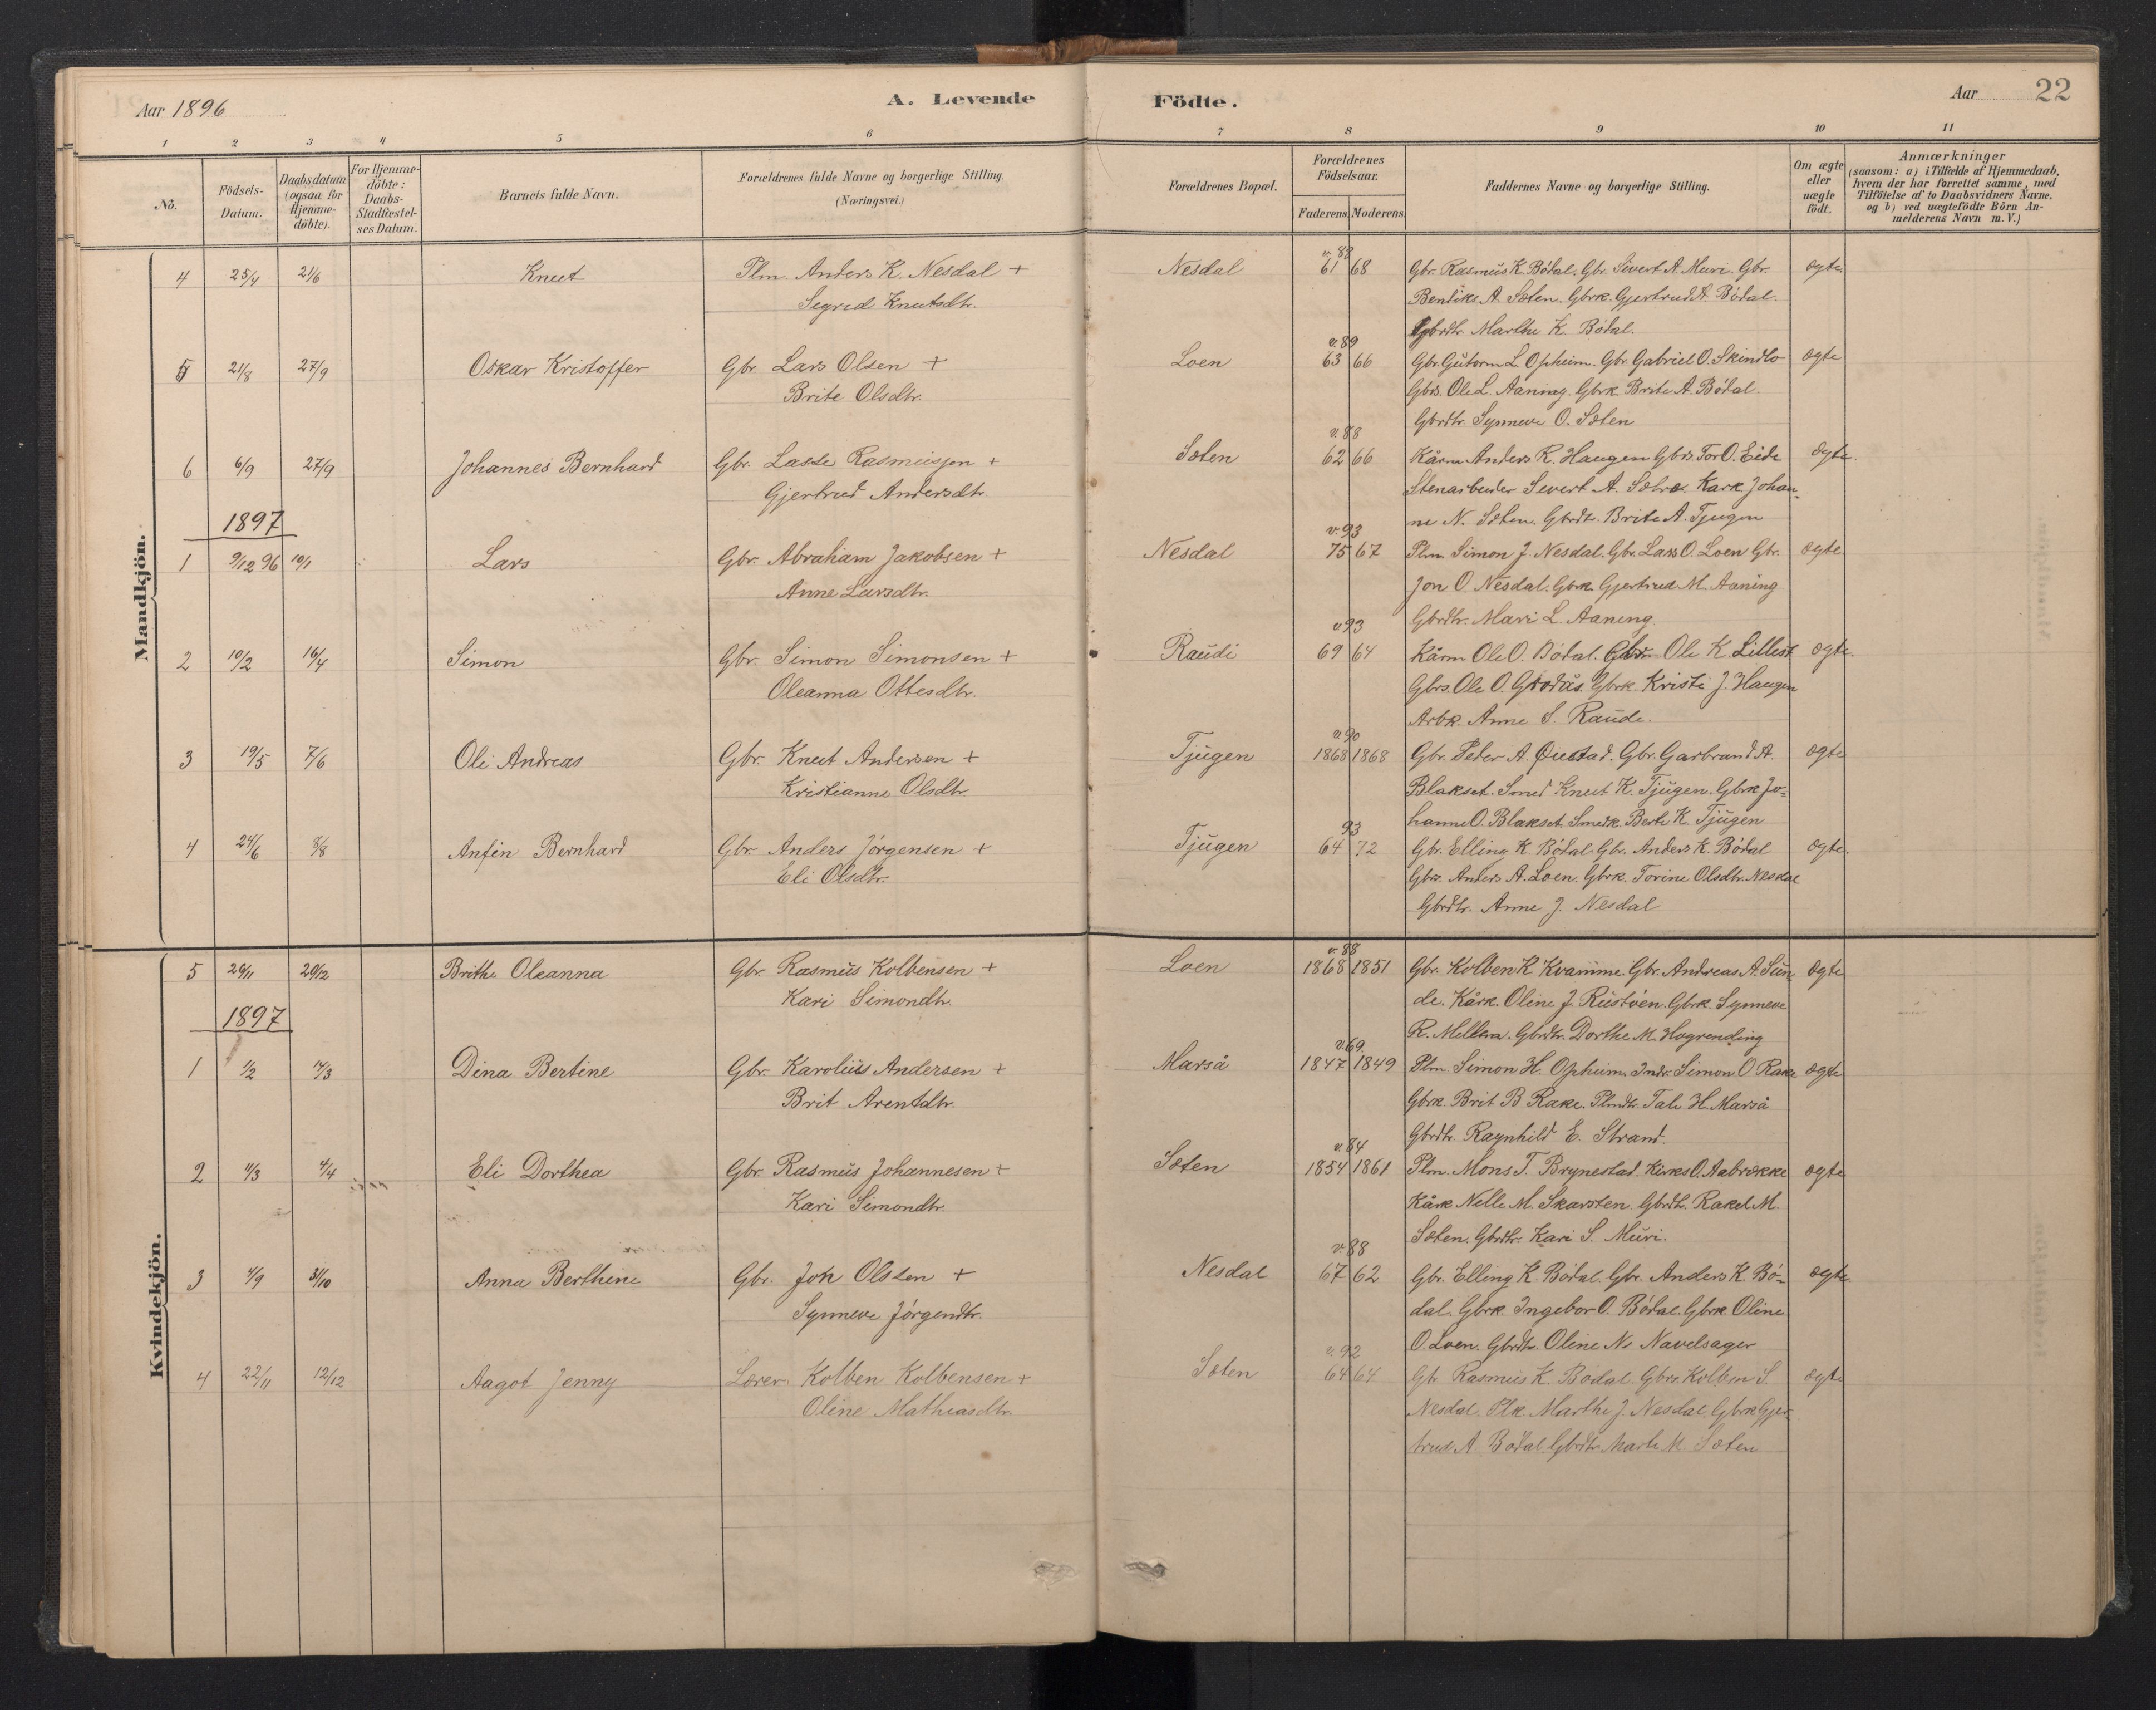 Aar 1896
A. Levende Födte.
Aar 22
1 2 3 4 5 6 7 8 9 10 11
No.
Födsels-Datum.
Daabsdatum (ogsaa for Hjemme-döbte).
For Hjemme-döbte: Daabs-Stadfæstel-ses Datum.
Barnets fulde Navn.
Forældrenes fulde Navne og borgerlige Stilling.
(Næringsvei.)
Forældrenes Bopæl.
Forældrenes Födselsaar.
Faderens. Moderens.
Faddernes Navne og borgerlige Stilling.
Om ægte eller uægte födt.
Anmærkninger
(saasom: a) i Tilfælde af Hjemmedaab,
hvem der har forrettet samme, med
Tilföielse af to Daabsvidners Navne,
og b) ved uægtefödte Börn An-
melderens Navn m. V.)
Mandkjön.
v. 88
4 25/4 21/6 Knut Plm. Anders K. Nesdal + Nesdal 61 68 Gbr. Rasmus K. Bödal. Gbr. Sivert A. Muri. Gbr. ægte.
Sigrid Knutsdtr. Bendiks A. Sæten. Gbrk. Gjertrud A. Bödal.
Gbrdtr. Marthe K. Bödal.
v. 89
5 21/8 27/9 Oskar Kristoffer Gbr. Lars Olsen + Loen 63 66 Gbr. Gutorm L. Opheim. Gbr. Gabriel O. Skindlo ægte
Brite Olsdtr. Gbrs. Ole L. Aaning. Gbrk. Brite A. Bödal.
Gbrdtr. Synneve O. Sæten
v. 88
6 6/9 27/9 Johannes Bernhard Gbr. Lasse Rasmussen + Sæten 62 66 Kårm. Anders R. Haugen Gbrs. Tor O. Eide ægte.
Gjertrud Andersdtr. Stenarbeider Sivert A. Sætre. Kark. Johan-
ne N. Sæten. Gbrdtr. Brite A. Tjugen
1897
v. 93
1 9/12 96 10/1 Lars Gbr. Abraham Jakobsen + Nesdal 75 67 Plm. Simon J. Nesdal. Gbr. Lars O. Loen Gbr. ægte
Anne Larsdtr. Jon O. Nesdal. Gbrk. Gjertrud M. Aaning
Gbrdtr. Mari L. Aaning.
v 93
2 10/2 16/4 Simon Gbr. Simon Simonsen + Raudi 69 64 Kårm Ole O. Bödal. Gbr. Ole K. Lillest ægte.
Oleanna Ottesdtr. Gbrs. Ole O. Grodås. Gbrk. Kristi J. Haugen
Arbk. Anne S. Raude.
v. 90
3 19/5 7/6 Oli Andreas Gbr. Knut Andersen + Tjugen 1868 1868 Gbr. Peder A. Gbr. Garbrand A. ægte
Kristianne Olsdtr Blakset. Smed Knut K. Tjugen. Gbrk Jo-
hanne O. Blakset. Smedk. Berte K. Tjugen
93
4 24/6 8/8 Anfin Bernhard Gbr. Anders Jörgensen + Tjugen 64 72 Gbr. Elling K. Bödal. Gbr. Anders K. Bödal ægte.
Eli Olsdtr. Gbrs. Anders A. Loen. Gbrk. Torine Olsdtr. Nesdal
Gbrdtr. Anne J. Nesdal
Kvindekjön.
v. 88
5 26/11 20/12 Brithe Oleanna Gbr. Rasmus Kolbensen + Loen 1868 1851 Gbr. Kolben K Kvamme. Gbr. Andreas A. Sun- ægte
Kari Simondtr. de. Kårk. Oline J. Rustöen. Gbrk. Synneve
R. Melheim. Gbrdtr. Dorthe M. Hogrending
1897
v. 69.
1 1/2 14/3 Dina Bertine Gbr. Karolius Andersen + Marså 1847 1849 Plm. Simon H. Opheim. Indr. Simon O Rake ægte
Brit Arentdtr. Gbrk. Brit B Rake. Plmdtr. Tale H. Marså
Gbrdtr. Ragnhild E. Strand.
v. 84
2 11/3 4/4 Eli Dorthea Gbr. Rasmus Johannesen + Sæten 1854 1861 Plm. Mons T. Brynestad. Kirks O. Aabrække ægte
Kari Simondtr. Kårk Nelle M. Skarsten. Gbrdtr. Rakel M.
Sæten. Gbrdtr. Kari S. Muri.
v. 88
3 4/9 31/10 Anna Berthine Gbr. Jon Olsen + Nesdal 67 62 Gbr. Elling K. Bödal. Gbr. Anders K. Bö- ægte.
Synneve Jörgendtr. dal. Gbrk. Ingebor O. Bödal. Gbrk. Oline
O. Loen. Gbrdtr. Oline Ns Navelsager
v. 92
4 22/11 12/12 Aagot Jenny Lærer Kolben Kolbensen + Sæten 64 64 Gb. Rasmus K. Bödal Gbrs Kolben S. ægte
Oline Mathiasdtr. Nesdal. Plk. Marthe J. Nesdal. Gbrk Gjer-
trud A Bödal. Gbrdtr. Marte M. Sæten